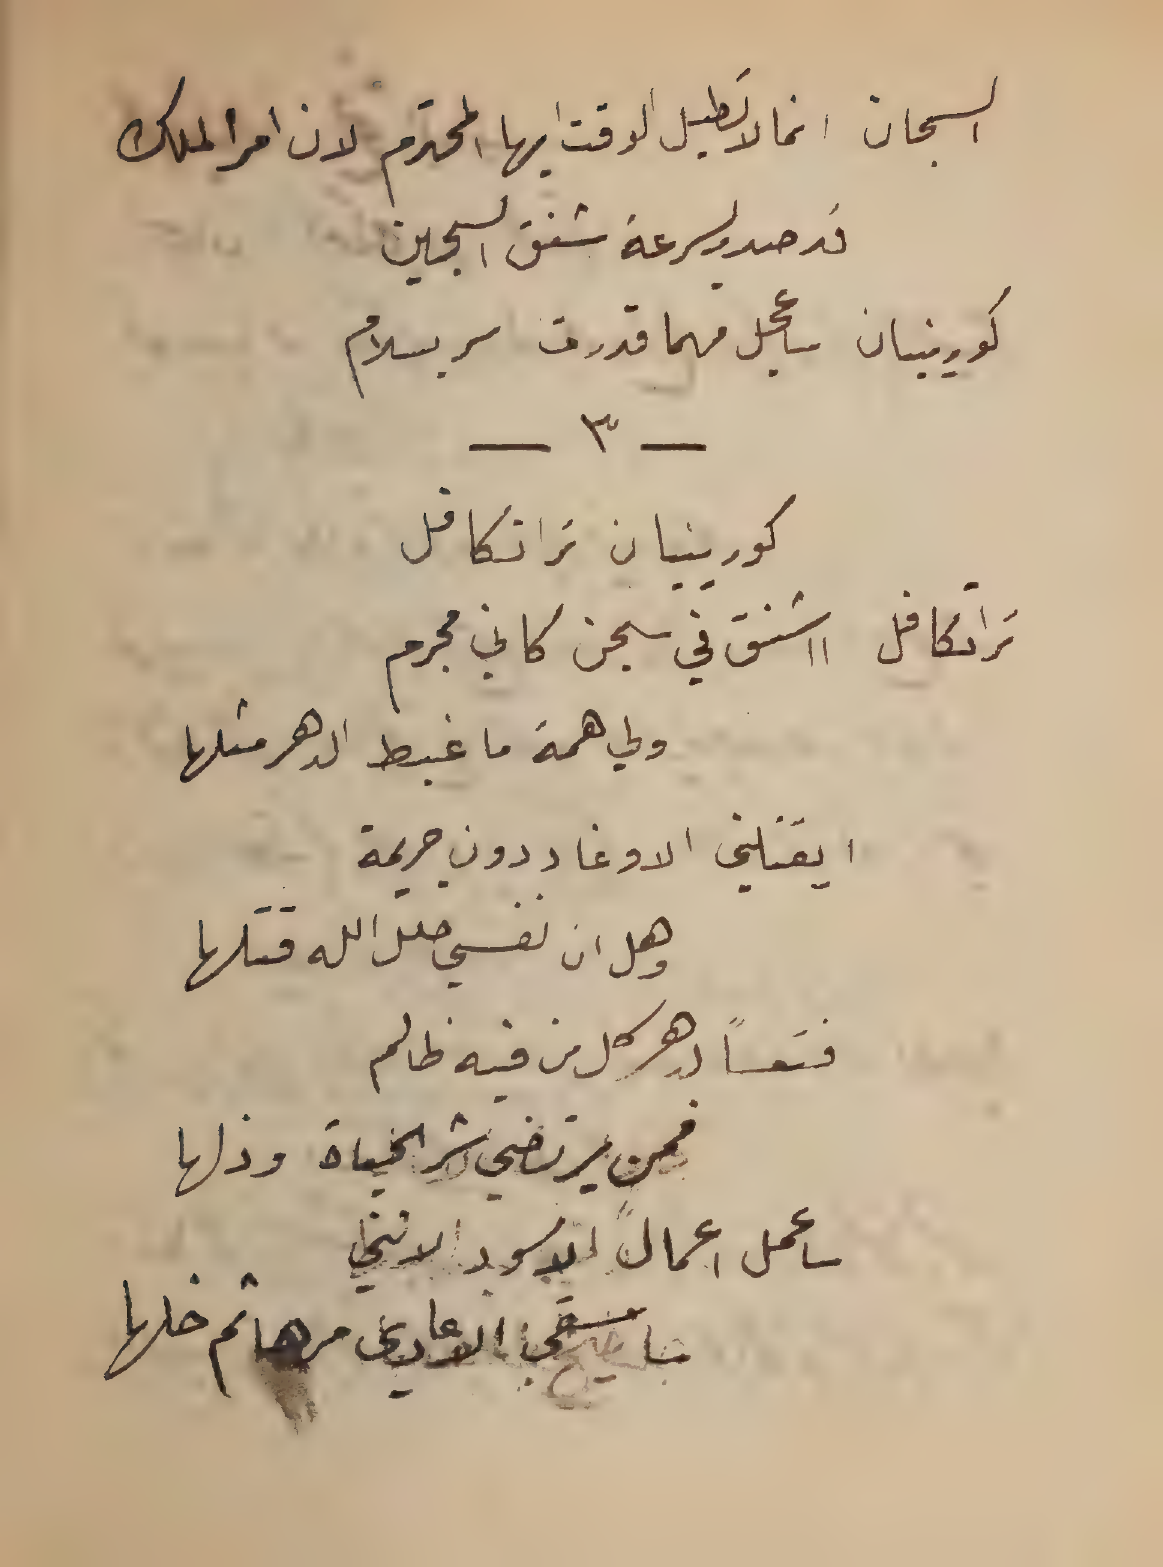 السجان انما لا تطيل الوقت ايها المحترم لان امر الملك
قد صدر بسرعة شنق السجين
كورينيان ساعجل مهما قدرت سر بسلام
— ٣ —
كورينيان تراتكافل
تراتكافل ااشنق في سجن كاني مجرم
ولي همة ما غبط الدهر مثلها
ايقتلني الاوغاد دون جريمة
وهل ان نفسي حلل الله قتلها
فتعساً لدهر كل من فيه ظالم
فمن يرتضي شر الحياة وذلها
ساعمل اعمالاً الاسود لانني
ساسقي الاعادي مرها ثم خلها